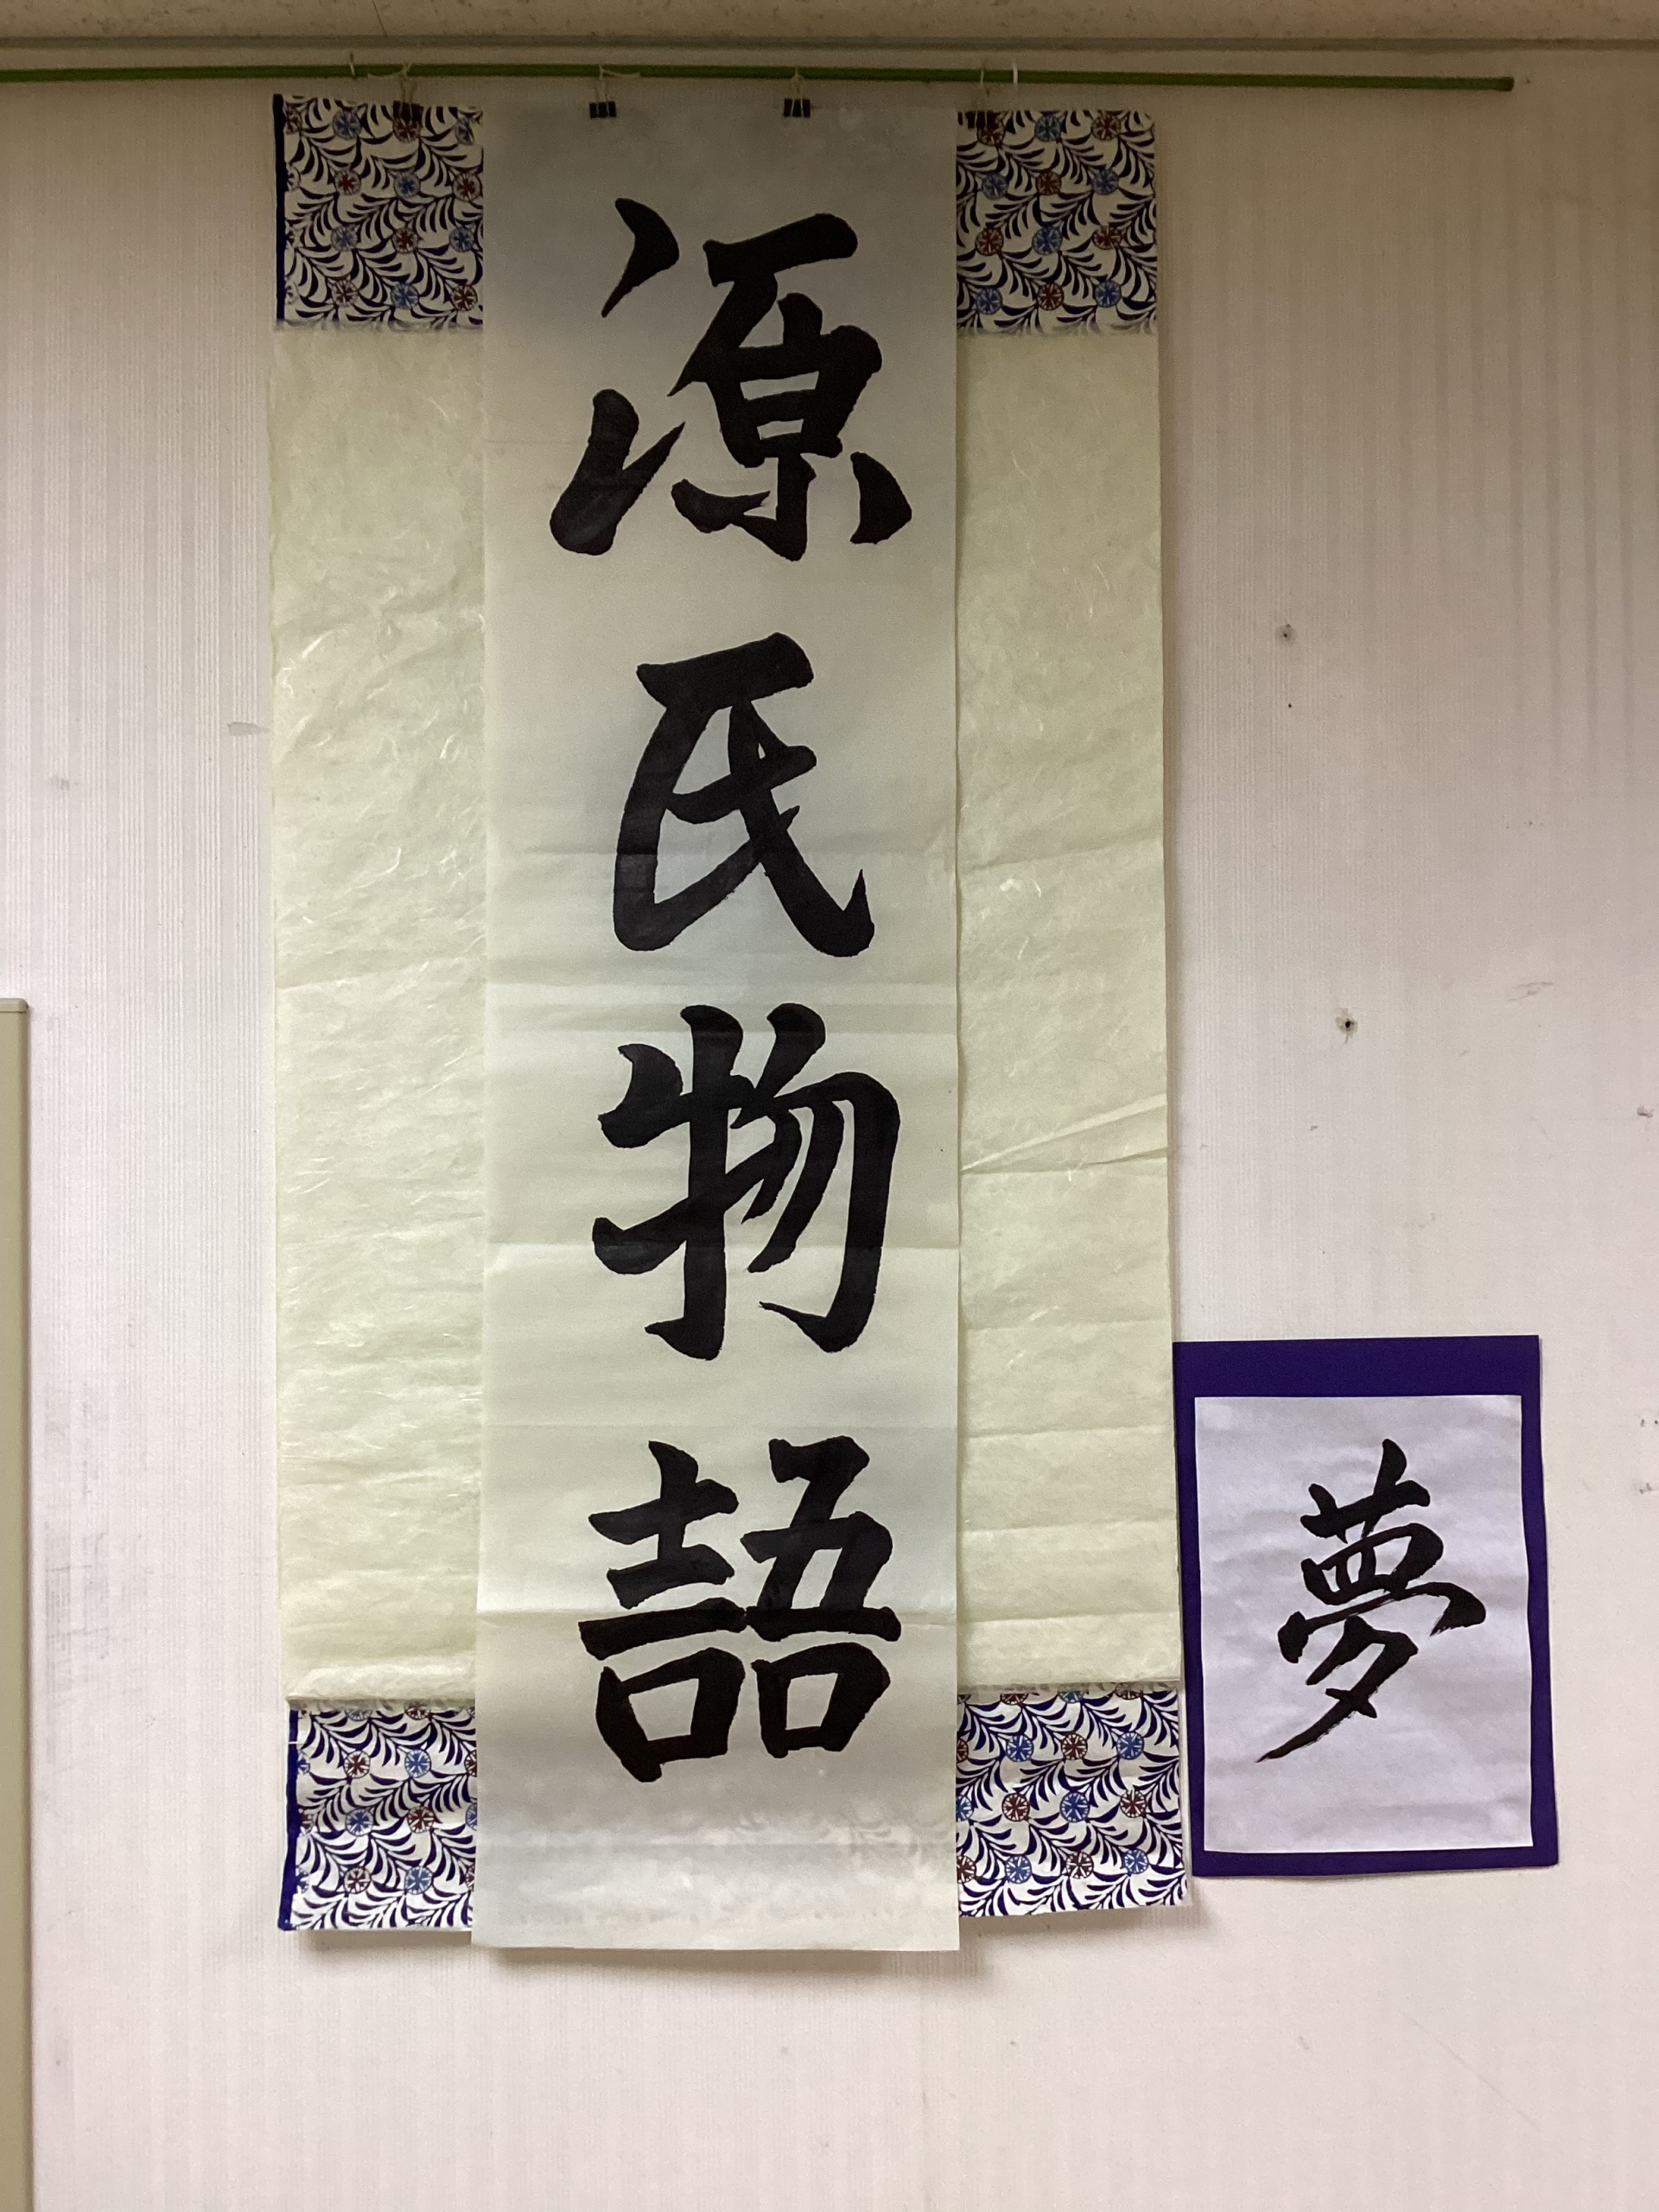 源氏物語
夢